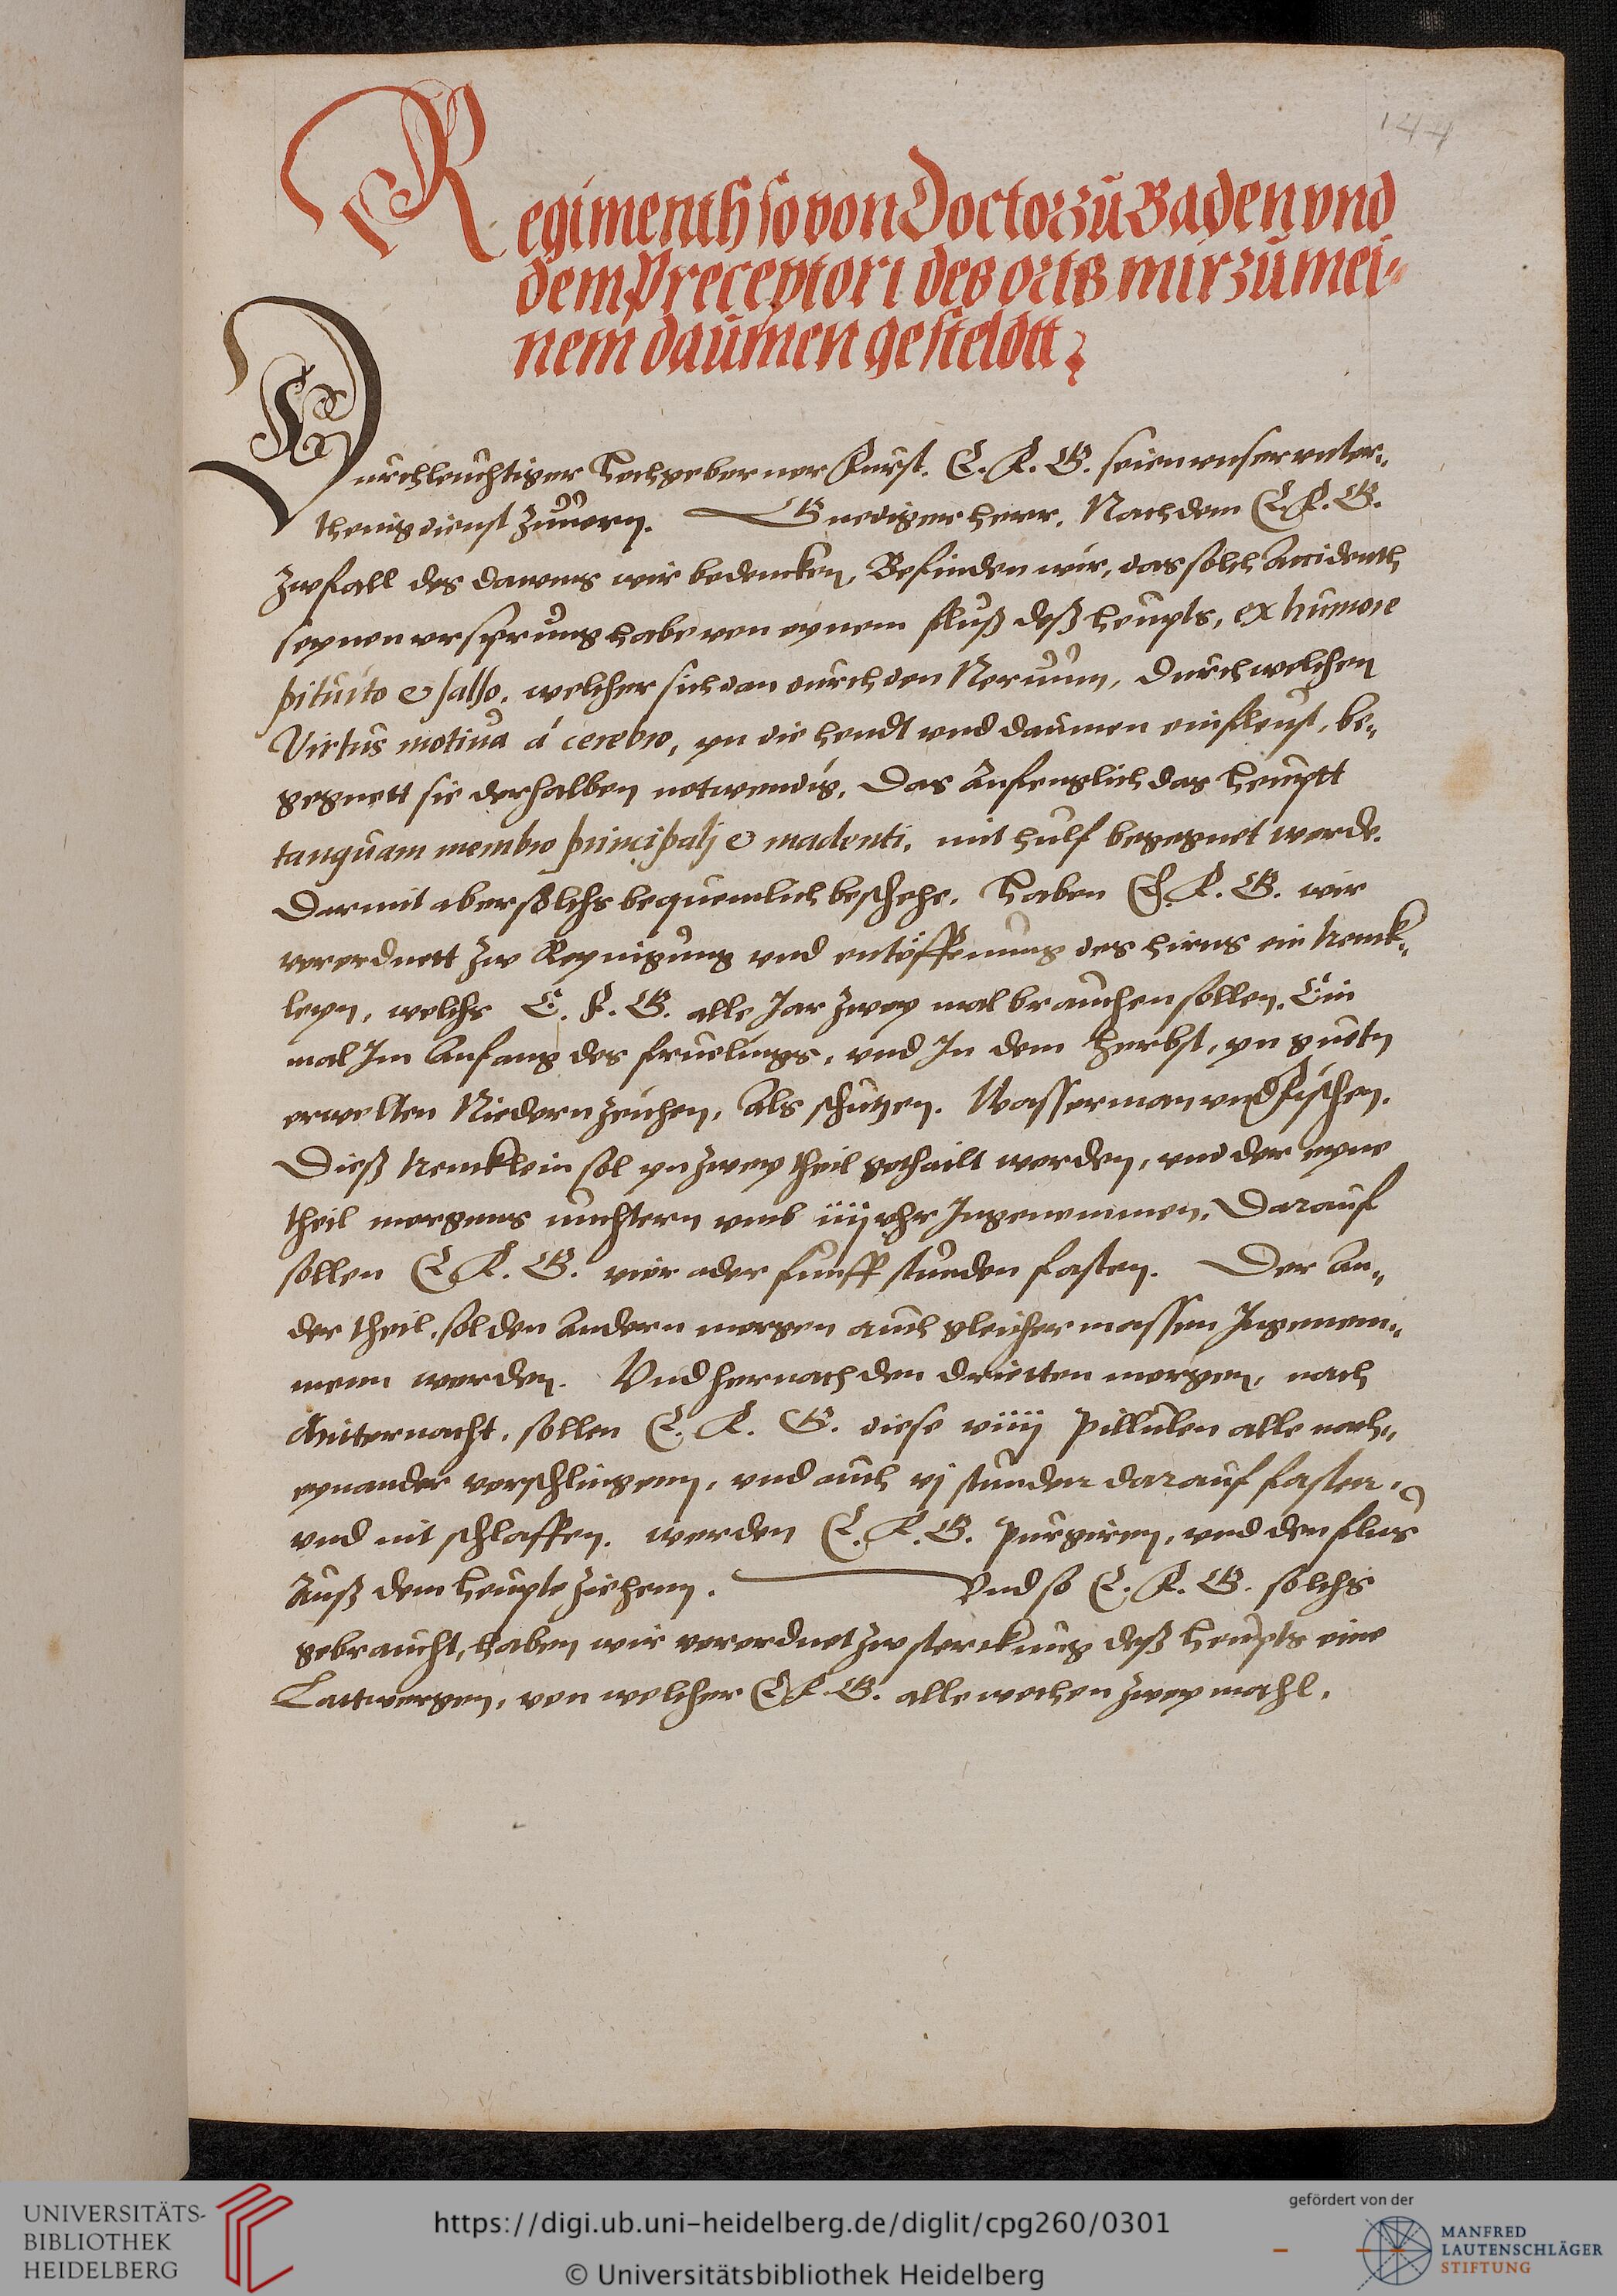 144
Regimenth so von Doctor zu Baden vnd
dem Preceptori des orts mir zu mei-
nem daumen gesteldtt
Durchleuchtiger Hochgeborner Furst. E. F. G. seien vnser vnter-
thenig dienst zuuorn. Gnediger herr. Nachdem E. F. G.
zwfall des dawms wir bedencken, Befinden wir, das solch Accidenth
seynen vrsprung habe von eynem fluß deß heupts, ex humore
pituito & salso. welcher sich dan durch den Neruum, durch welchen
Virtus motiua á cerebro, yn die hendt vnd daumen einfleust, be-
gegnett sie derhalben notwendig. Das anfenglich das heuptt
tanquam membro principalj & madenti. mit hulf begegnet werde.
Darmit aber solchs bequemlich beschehe. Haben E. F. G. wir
verordnett zw Reynigung vnd entöffenung des hirns ein trenck-
leyn, welchs E. F. G. alle Jar zwey mal brauchen sollen. Ein
mal Im Anfang des fruelings, vnd In dem Herbst, yn guetn
erwelten Niedern zeichen, Als schutzen. Wasserman vnd fischen.
Dieß trencklein sol yn zwey theil gethailt werden, vnd der eyne
theil morgens nuchtern vmb iiij vhr Ingenommen. Darauf
sollen E. F. G. vier oder funff stunden fasten. Der An-
der theil, sol den andern morgen auch gleicher massen Ingenom-
menn werden. Vnd hernach den dritten morgen, nach
Mitternacht, sollen E. F. G. diese viiij Pillulen alle nach-
eynander verschlingenn, vnd auch vj stunden darauf fasten,
vnd nit schlaffen. werden E. F. G. purgiren, vnd den flus
Auß dem heupte ziehenn. Vnd so E. F. G. solchs
gebraucht, haben wir verordnet zw sterckung deß heupts eine
Lattwergen, von welcher E. F. G. alle wochen zwey mahl,
UNIVERSITÄTS-
BIBLIOTHEK
HEIDELBERG
https://digi.ub.uni-heidelberg.de/diglit/cpg260/0301
© Universitätsbibliothek Heidelberg
gefördert von der
MANFRED
LAUTENSCHLÄGER
STIFTUNG